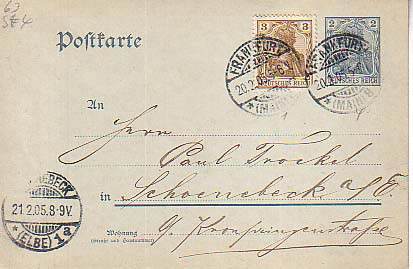 63
SE4
Postkarte
3
DEUTSCHES REICH
2
DEUTSCHES REICH
FRANKFURT
20.2.05.
*(MAIN)
FRANKFURT
20.2.05.
*(MAIN)
1
An
Herrn
Paul Trockel
in Schoenebeck a/E.
Wohnung
(Straße und Hausnummer)
9. Kronprinzenstraße
EBECK
21.2.05.8-9V.
*(ELBE)1a